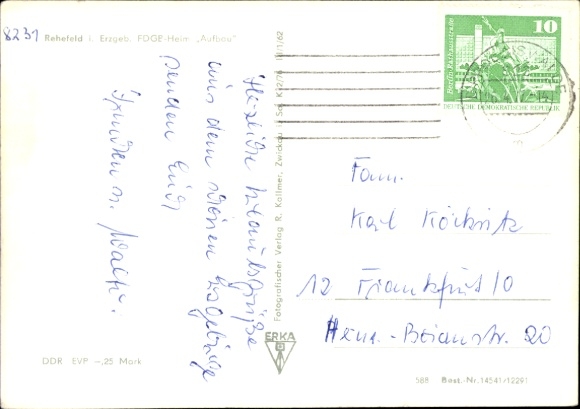 8231
Rehefeld i. Erzgeb. FDGB-Heim „Aufbau"
Herzliche Urlaubsgrüße
aus dem schönen Erzgebirge
senden Euch
u. Walter.
Fotografischer Verlag R. Kallmer, Zwickau i. Sa.
III/1/62
10
Berlin, Rathausstraße
DEUTSCHE DEMOKRATISCHE REPUBLIK
Fam.
Karl Köckritz
12 Frankfurt/O
Heinr.-
str. 20
ERKA
DDR EVP –,25 Mark
588 Best.-Nr. 14541/12291